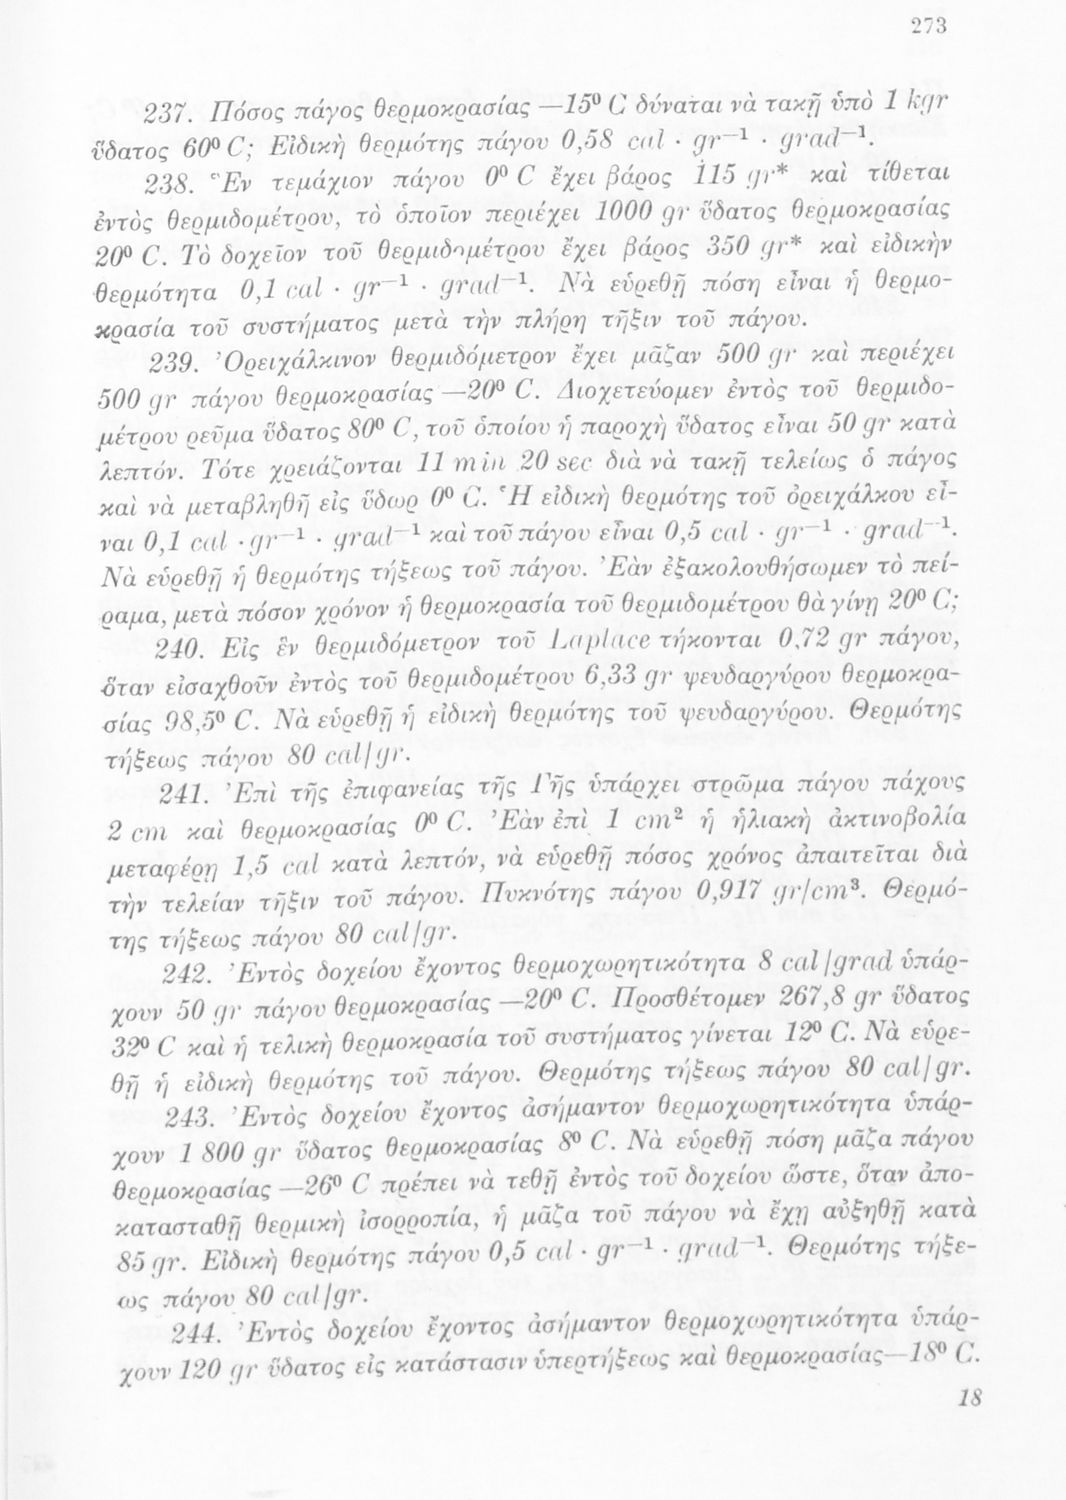 273
237. Πόσος πάγος θερμοκρασίας —15⁰ C δύναται νὰ τακῇ ὑπὸ 1 kgr
ὕδατος 60⁰ C; Εἰδικὴ θερμότης πάγου 0,58 cal · gr—¹ · grad—¹.
238. Ἓν τεμάχιον πάγου 0⁰ C ἔχει βάρος 115 gr* καὶ τίθεται
ἐντὸς θερμιδομέτρου, τὸ ὁποῖον περιέχει 1000 gr ὕδατος θερμοκρασίας
20⁰ C. Τὸ δοχεῖον τοῦ θερμιδομέτρου ἔχει βάρος 350 gr* καὶ εἰδικὴν
θερμότητα 0,1 cal · gr—¹ · grad—¹. Νὰ εὑρεθῇ πόση εἶναι ἡ θερμο-
κρασία τοῦ συστήματος μετὰ τὴν πλήρη τῆξιν τοῦ πάγου.
239. Ὀρειχάλκινον θερμιδόμετρον ἔχει μᾶζαν 500 gr καὶ περιέχει
500 gr πάγου θερμοκρασίας —20⁰ C. Διοχετεύομεν ἐντὸς τοῦ θερμιδο-
μέτρου ρεῦμα ὕδατος 80⁰ C, τοῦ ὁποίου ἡ παροχὴ ὕδατος εἶναι 50 gr κατὰ
λεπτόν. Τότε χρειάζονται 11 min 20 sec διὰ νὰ τακῇ τελείως ὁ πάγος
καὶ νὰ μεταβληθῇ εἰς ὕδωρ 0⁰ C. Ἡ εἰδικὴ θερμότης τοῦ ὀρειχάλκου εἶ-
ναι 0,1 cal · gr—¹ · grad—¹ καὶ τοῦ πάγου εἶναι 0,5 cal · gr—¹ · grad—¹.
Νὰ εὑρεθῇ ἡ θερμότης τήξεως τοῦ πάγου. Ἐὰν ἐξακολουθήσωμεν τὸ πεί-
ραμα, μετὰ πόσον χρόνον ἡ θερμοκρασία τοῦ θερμιδομέτρου θὰ γίνῃ 20⁰ C;
240. Εἰς ἓν θερμιδόμετρον τοῦ Laplace τήκονται 0,72 gr πάγου,
ὅταν εἰσαχθοῦν ἐντὸς τοῦ θερμιδομέτρου 6,33 gr ψευδαργύρου θερμοκρα-
σίας 98,5⁰ C. Νὰ εὑρεθῇ ἡ εἰδικὴ θερμότης τοῦ ψευδαργύρου. Θερμότης
τήξεως πάγου 80 cal/gr.
241. Ἐπὶ τῆς ἐπιφανείας τῆς Γῆς ὑπάρχει στρῶμα πάγου πάχους
2 cm καὶ θερμοκρασίας 0⁰ C. Ἐὰν ἐπὶ 1 cm² ἡ ἡλιακὴ ἀκτινοβολία
μεταφέρῃ 1,5 cal κατὰ λεπτόν, νὰ εὑρεθῇ πόσος χρόνος ἀπαιτεῖται διὰ
τὴν τελείαν τῆξιν τοῦ πάγου. Πυκνότης πάγου 0,917 gr/cm³. Θερμό-
της τήξεως πάγου 80 cal/gr.
242. Ἐντὸς δοχείου ἔχοντος θερμοχωρητικότητα 8 cal/grad ὑπάρ-
χουν 50 gr πάγου θερμοκρασίας —20⁰ C. Προσθέτομεν 267,8 gr ὕδατος
32⁰ C καὶ ἡ τελικὴ θερμοκρασία τοῦ συστήματος γίνεται 12⁰ C. Νὰ εὑρε-
θῇ ἡ εἰδικὴ θερμότης τοῦ πάγου. Θερμότης τήξεως πάγου 80 cal/gr.
243. Ἐντὸς δοχείου ἔχοντος ἀσήμαντον θερμοχωρητικότητα ὑπάρ-
χουν 1 800 gr ὕδατος θερμοκρασίας 8⁰ C. Νὰ εὑρεθῇ πόση μᾶζα πάγου
θερμοκρασίας —26⁰ C πρέπει νὰ τεθῇ ἐντὸς τοῦ δοχείου ὥστε, ὅταν ἀπο-
κατασταθῇ θερμικὴ ἰσορροπία, ἡ μᾶζα τοῦ πάγου νὰ ἔχῃ αὐξηθῇ κατὰ
85 gr. Εἰδικὴ θερμότης πάγου 0,5 cal · gr—¹ · grad—¹. Θερμότης τήξε-
ως πάγου 80 cal/gr.
244. Ἐντὸς δοχείου ἔχοντος ἀσήμαντον θερμοχωρητικότητα ὑπάρ-
χουν 120 gr ὕδατος εἰς κατάστασιν ὑπερτήξεως καὶ θερμοκρασίας—18⁰ C.
18